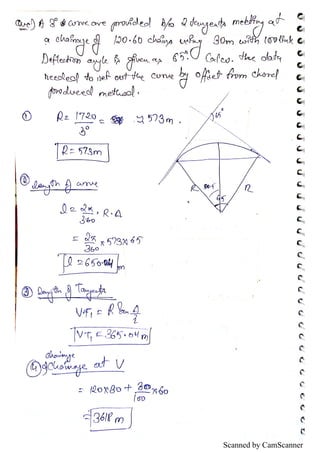 Ques) A 3° curve are provided b/w 2 tangents meeting at
a chainage of 120.60 chains using 30m with 100 link
Deflection angle is given as 65°. Calcu. the data
needed to set out the curve by offset from chord
produced method.
① R = 1720 / 3° = ≃ 573 m.
R = 573m
② Length of curve
l = 2π/360 · R·Δ
= 2π/360 × 573 × 65
l = 650.04 m
③ Length of Tangents
VT₁ = R tan Δ/2
VT₁ = 365.04 m
chainage
④ chainage at V
= 120×30 + 30/100 × 60
= 3618 m
65°
R
R
65
Scanned by CamScanner